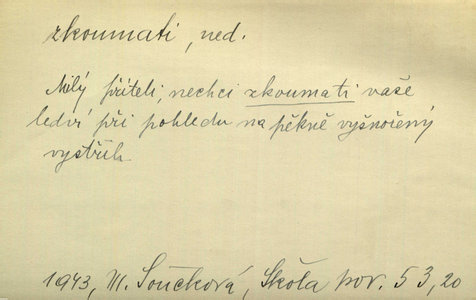 zkoumati, ned.
Milý příteli, nechci zkoumati vaše
ledví při pohledu na pěkně vyšnořený
vystřih.
1943, M. Součková, Škola pov. 53, 20